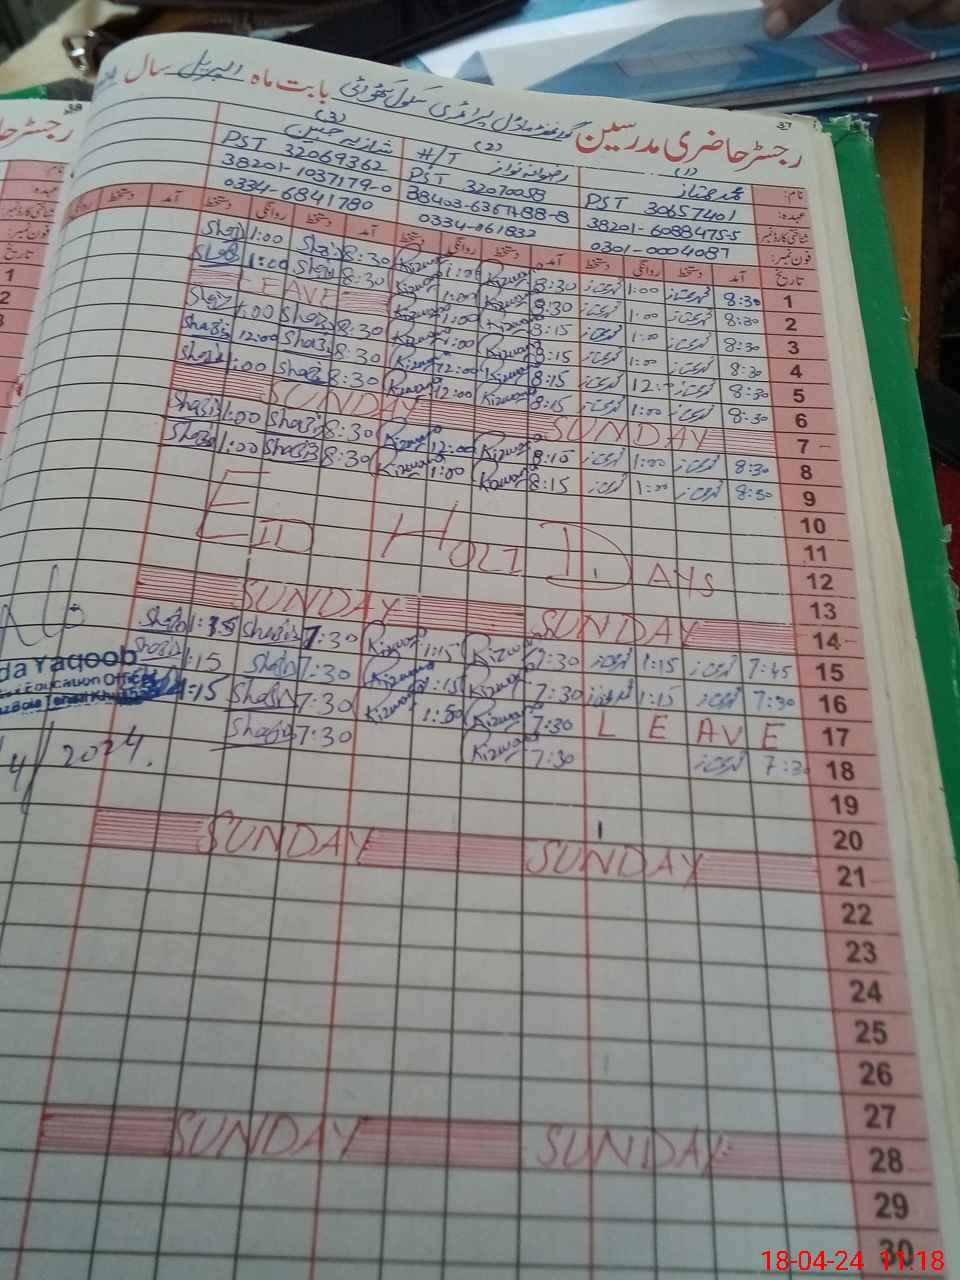 37
رجسٹر حاضری مدرسین گورنمنٹ ماڈل پرائمری سکول بابت ماہ اپریل سال
نام: (1) محمد ممتاز (2) رضوانہ نواز (3) شازیہ
عہدہ: PST 30657401 H/T PST 32070058 PST 32069362
شناختی کارڈ نمبر 38201-6088475-5 38201-1037179-0
فون نمبر: 0301-0004087 0334-6841780
تاریخ آمد دستخط روانگی دستخط آمد دستخط روانگی دستخط آمد دستخط روانگی دستخط آمد دستخط روانگی
1 8:30 ممتاز 1:00 ممتاز 8:30 Rizwana 1:00 Rizwana 8:30 Shazia 1:00 Shazia
2 8:30 ممتاز 1:00 ممتاز 8:30 Rizwana 1:00 Rizwana 8:30 Shazia 1:00 Shazia
3 8:30 ممتاز 1:00 ممتاز 8:15 Rizwana 1:00 Rizwana LEAVE
4 8:30 ممتاز 1:00 ممتاز 8:15 Rizwana 1:00 Rizwana 8:30 Shazia 1:00 Shazia
5 8:30 ممتاز 12: ممتاز 8:15 Rizwana 12:00 Rizwana 8:30 Shazia 12:00 Shazia
6 8:30 ممتاز 1:00 ممتاز 8:15 Rizwana 12:00 Rizwana 8:30 Shazia 1:00 Shazia
7 SUNDAY SUNDAY
8 8:30 ممتاز 1:00 ممتاز 8:15 Rizwana 12:00 Rizwana 8:30 Shazia 1:00 Shazia
9 8:30 ممتاز 1:00 ممتاز 8:15 Rizwana 1:00 Rizwana 8:30 Shazia 1:00 Shazia
10
11 EID HOLIDAYS
12
13
14 SUNDAY SUNDAY
15 7:45 ممتاز 1:15 ممتاز 7:30 Rizwana 1:15 Rizwana 7:30 Shazia 1:15 Shazia
16 7:30 ممتاز 1:15 ممتاز 7:30 Rizwana 1:15 Rizwana 7:30 Shazia 1:15 Shazia
17 LEAVE 7:30 Rizwana 1:50 Rizwana 7:30 Shazia 1:15
18 7:30 ممتاز 7:30 Rizwana 7:30 Shazia
19
20
21 SUNDAY SUNDAY
22
23
24
25
26
27
28 SUNDAY SUNDAY
29
30
da Yaqoob
Education Officer
4/2024.
18-04-24 11:18